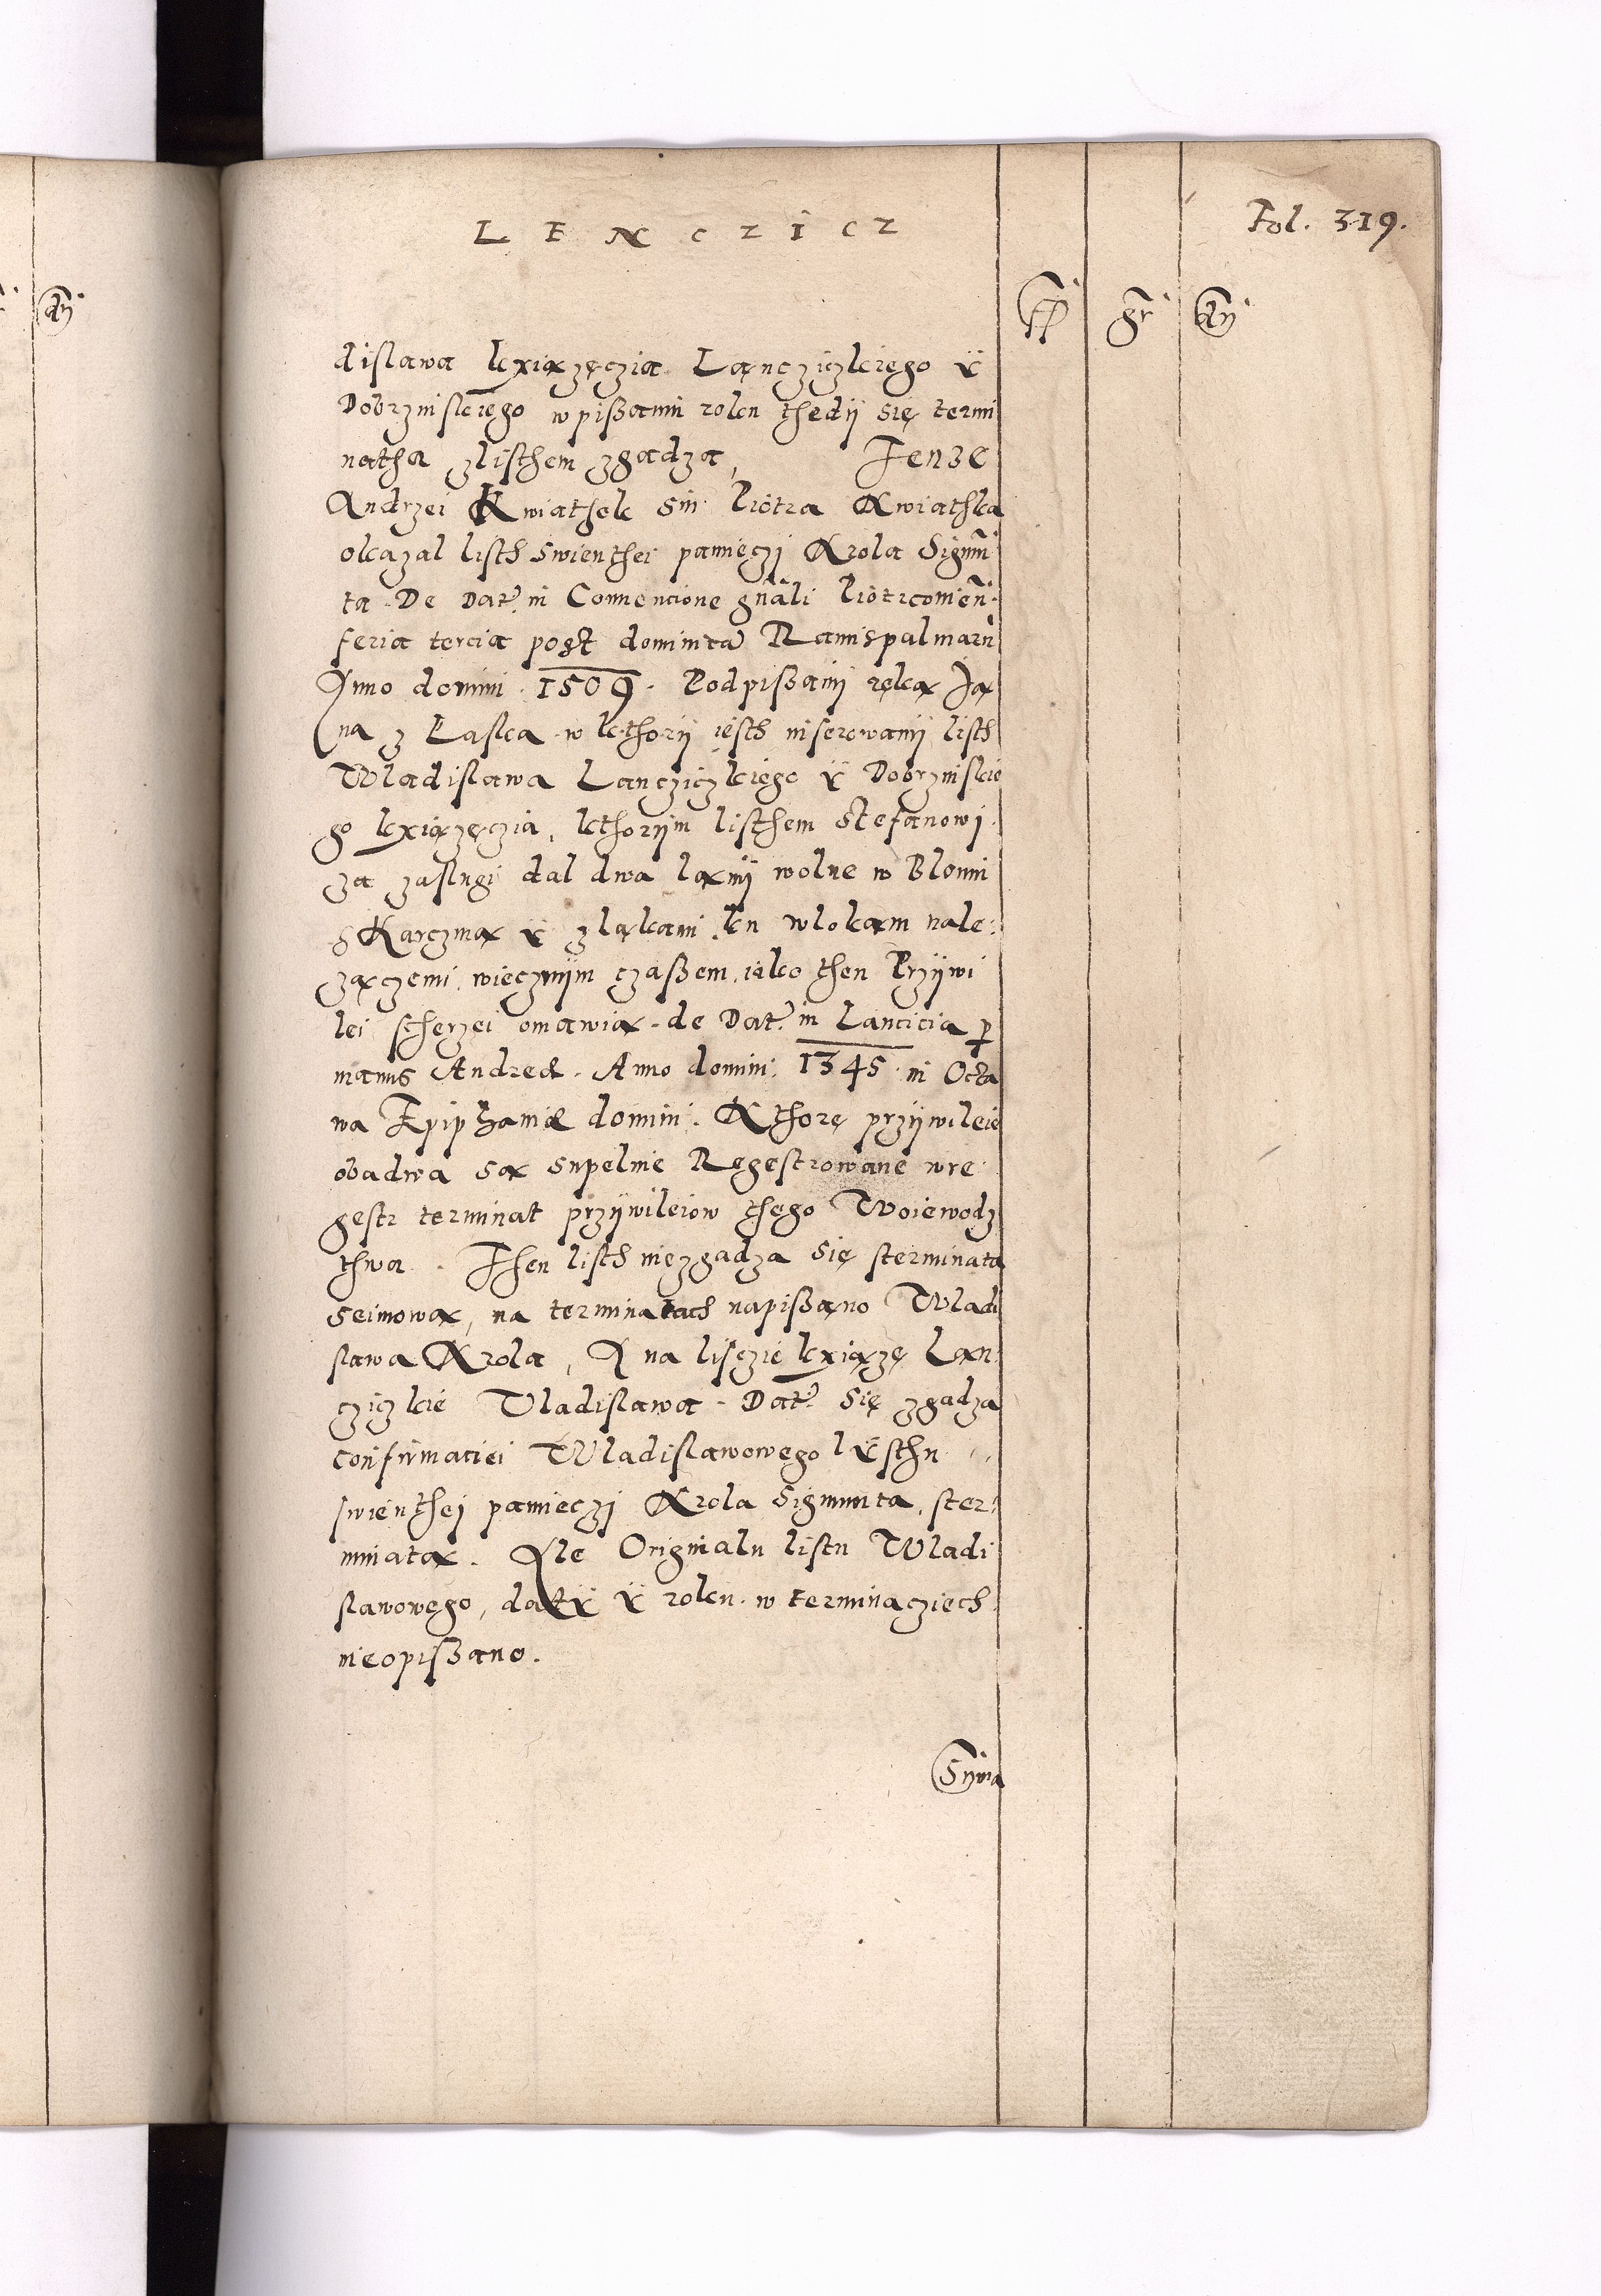 LENCZICZ
Fol. 319.
gr
dislawa kxiązęczia Lanczyczkiego ÿ
Dobrzinskiego w pißanni roku thedij się termi
natha z listhem zgadza, Tenze
Andrzei Kwiathek sin Piotra Kwiathka
okazal listh swienthei pamięczi Krola Sigmū
ta. De Dat. in Conuencione gn̄ali Piotrcouien̄.
feria tercia post dominicā Ramispalmarū
Anno domini. 1509. Podpißanij ręką Ja
na z Laska w kthorij iesth inserowanij listh
Wladislawa Lanczyczkiego ÿ Dobrzinskie
go kxiązęczia, kthorijm listhem Stefanowi
za zaslugi dal dwa lanij wolne w Bloniu
s Karczmą ÿ z ląkami ku wlokam nale:
ząęczemi wiecznijm czaßem, iako then Przijwi
lei scherzei omawia. de Dat. in Lancicia p
manus Andreæ. Anno domini. 1345 in Octa
wa Epiphaniæ domini. Kthore przijwileie
obadwa są supelnie Regestrowane w re
gestr terminat przijwileiow thego Woiewodz
thwa. Then listh niezgadza się s terminatą
seimową, na terminatach napißano Wladi
slawa Krola, A na lisczie kxiązę Lan
czyczkie Wladislawa. Dat. się zgadza
confirmaciei Wladislawowego lÿsthu
swienthej pamięczi Krola Sigmunta, s ter:
minatą. Ale Originalu listu Wladi
slawowego, datÿ ÿ roku. w terminacziech
nieopißano.